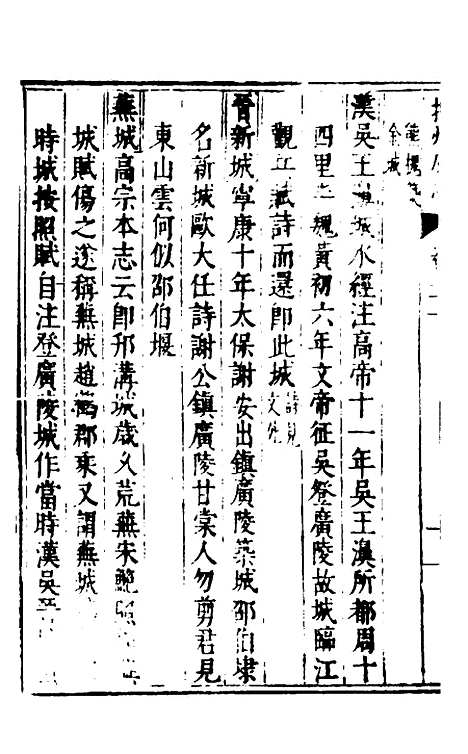 漢吳王濞城水經注高帝十一年吳王濞所都周十
四里 魏黃初六年文帝征吳登廣陵故城臨江
觀兵賦詩而還即此城詩見文
晉新城寧康十年太保謝安出鎮廣陵築城邵伯埭
名新城歐大任詩謝公鎮廣陵甘棠人勿剪君見
東山雲何似邵伯堰
蕪城高宗本志云即邗溝城歲久荒蕪宋鮑照
城賦傷之遂稱蕪城趙 郡乘又謂蕪城
時城按照賦自注登廣陵城作當時漢吳